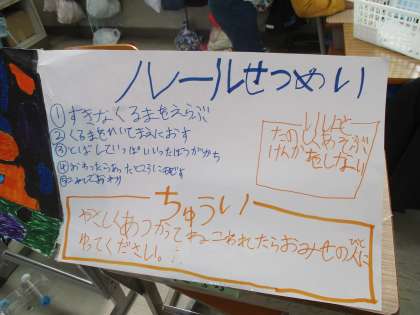 ルールせつめい
①すきなくるまをえらぶ
②くるまをいれてまえにおす
③とばしていっぱいいったほうがかち
④おわったらあったところにもどす
⑤これでおわり
たのしくあそぶ
けんかをしない
ちゅうい
やさしくあつかってねこわれたらおみせの人に
ひと
いってください。